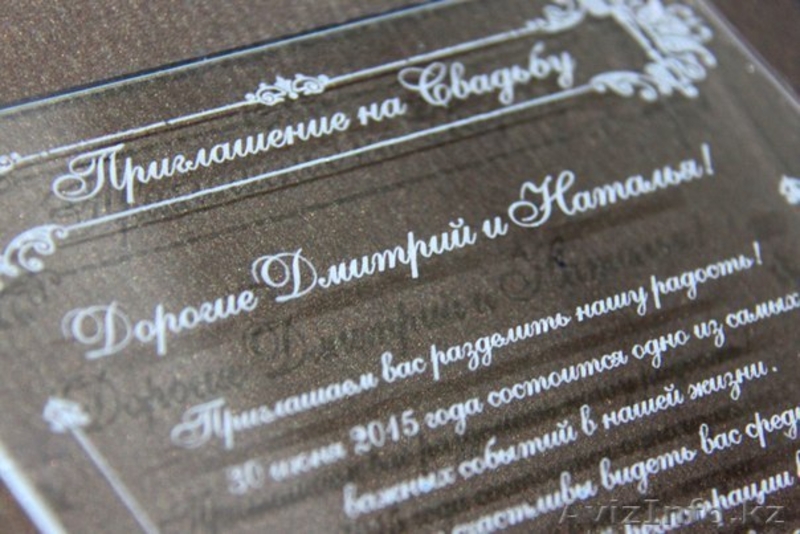 Приглашение на Свадьбу
Дорогие Дмитрий и Наталья!
Приглашаем вас разделить нашу радость!
30 июня 2015 года состоится одно из самых
важных событий в нашей жизни.
счастливы видеть вас
AvizInfo.kz